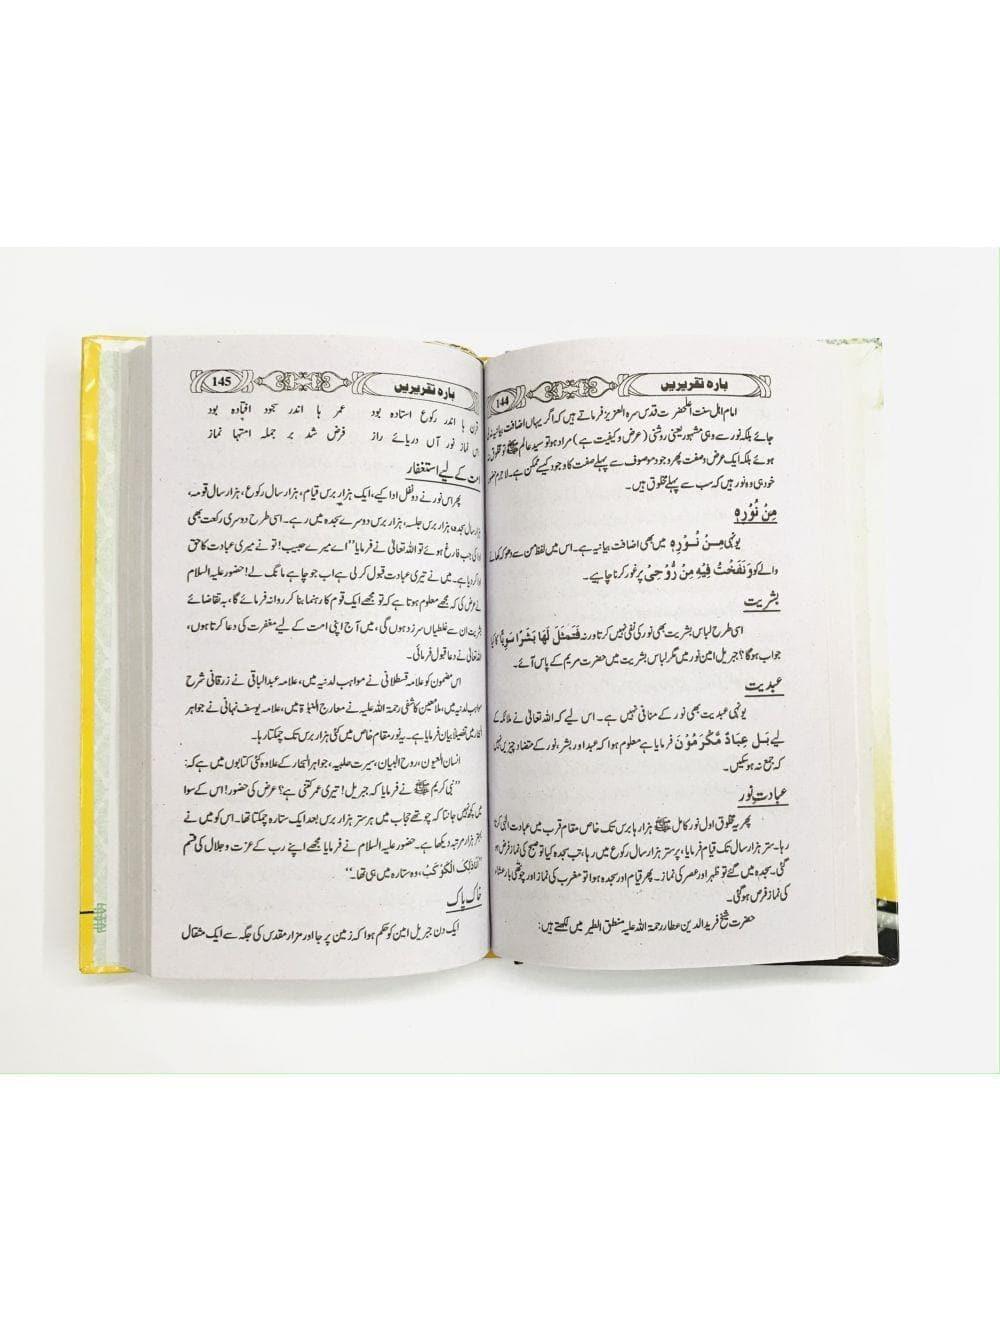 باره تقریریں
144
امام اہل سنت اعلیٰحضرت قدس سرہ العزیز فرماتے ہیں کہ اگر یہاں اضافت بیانیہ نہ لی
جائے بلکہ نور سے وہی مشہور یعنی روشنی (عرض و کیفیت ہے) مراد ہو تو سید عالم ﷺ تو مخلوق نہ
ہوئے بلکہ ایک عرض و صفت پھر وجود موصوف سے پہلے صفت کا وجود کیسے ممکن ہے۔ لاجرم حضور
خود ہی وہ نور ہیں کہ سب سے پہلے مخلوق ہیں۔
مِنْ نُوْرِهٖ
یونہی مِنْ نُوْرِهٖ میں بھی اضافت بیانیہ ہے۔ اس میں لفظ من سے دھوکہ کھانے
والے کو وَنَفَخْتُ فِيْهِ مِنْ رُّوْحِیْ پر غور کرنا چاہیے۔
بشریت
اسی طرح لباس بشریت بھی نور کی نفی نہیں کرتا ورنہ فَتَمَثَّلَ لَهَا بَشَرًا سَوِيًّا کا کیا
جواب ہوگا؟ جبریل امین نور ہیں مگر لباس بشریت میں حضرت مریم کے پاس آئے۔
عبدیت
یونہی عبدیت بھی نور کے منافی نہیں ہے۔ اس لیے کہ اللہ تعالیٰ نے ملائکہ کے
لیے بَلْ عِبَادٌ مُّكْرَمُوْنَ فرمایا ہے معلوم ہوا کہ عبد اور بشر، نور کے متضاد چیزیں نہیں
کہ جمع نہ ہوسکیں۔
عبادتِ نور
پھر یہ مخلوق اول نور کامل ﷺ ہزار ہا برس تک خاص مقام قرب میں عبادت الٰہی کرتا
رہا۔ ستر ہزار سال تک قیام فرمایا، پر ستر ہزار سال رکوع میں رہا، جب سجدہ کیا تو صبح کی نماز فرض ہو
گئی۔ سجدہ میں گئے تو ظہر اور عصر کی نماز۔ پھر قیام اور سجدہ ہوا تو مغرب کی نماز اور چوتھی بار عشاء
کی نماز فرض ہوگئی۔
حضرت شیخ فرید الدین عطار رحمۃ اللہ علیہ منطق الطیر میں لکھتے ہیں:
باره تقریریں
145
قرن ہا اندر رکوع استادہ بود عمر ہا اندر سجود افتادہ بود
نماز نور آں دریائے راز فرض شد بر جملہ امتہا نماز
امت کے لیے استغفار
پھر اس نور نے دو نفل ادا کیے، ایک ہزار برس قیام، ہزار سال رکوع، ہزار سال قومہ،
ہزار سال سجدہ، ہزار برس جلسہ، ہزار برس دوسرے سجدہ میں رہے۔ اسی طرح دوسری رکعت بھی
ادا کی جب فارغ ہوئے تو اللہ تعالیٰ نے فرمایا ”اے میرے حبیب! تو نے میری عبادت کا حق
ادا کر دیا ہے۔ میں نے تیری عبادت قبول کر لی ہے اب جو چاہے مانگ لے! حضور علیہ السلام
نے عرض کی کہ مجھے معلوم ہوتا ہے کہ تو مجھے ایک قوم کا رہنما بنا کر روانہ فرمائے گا، بہ تقاضائے
بشریت ان سے غلطیاں سرزد ہوں گی، میں آج اپنی امت کے لیے مغفرت کی دعا کرتا ہوں،
اللہ تعالیٰ نے دعا قبول فرمائی۔
اس مضمون کو علامہ قسطلانی نے مواہب لدنیہ میں، علامہ عبدالباقی نے زرقانی شرح
مواہب لدنیہ میں، ملا معین کاشفی رحمۃ اللہ علیہ نے معارج النبوۃ میں، علامہ یوسف نبہانی نے جواہر
میں تفصیلاً بیان فرمایا ہے۔ یہ نور مقام خاص میں کئی ہزار برس تک چمکتا رہا۔
انسان العیون، روح البیان، سیرت حلبیہ، جواہر البحار کے علاوہ کئی کتابوں میں ہے کہ:
”نبی کریم ﷺ نے فرمایا کہ جبریل! تیری عمر کتنی ہے؟ عرض کی حضور! اس کے سوا
میں کچھ نہیں جانتا کہ چوتھے حجاب میں ہر ستر ہزار برس بعد ایک ستارہ چمکتا تھا۔ اس کو میں نے
بہتر ہزار مرتبہ دیکھا ہے۔ حضور علیہ السلام نے فرمایا مجھے اپنے رب کے عزت و جلال کی قسم
اَنَا ذٰلِكَ الْكَوْكَبُ، وہ ستارہ میں ہی تھا۔“
خاکِ پاک
ایک دن جبریل امین کو حکم ہوا کہ زمین پر جا اور مزار مقدس کی جگہ سے ایک مثقال